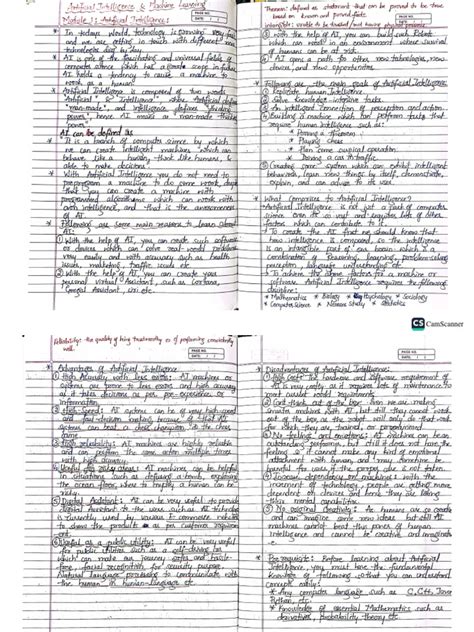 Artificial Intelligence & Machine Learning
Module 1: Artificial Intelligence:
PAGE NO.
DATE
* In todays world, technology is growing very fast
and we are getting in touch with different new
technologies day by day.
* AI is one of the fascinating and universal fields of
computer science which has a great scope in future.
AI holds a tendency to cause a machine to
work as a human.
* Artificial Intelligence is composed of two words
"Artificial" & "Intelligence" where Artificial defines
"man-made", and intelligence defines "thinking
power", hence AI means as "man-made thinking
power".
AI can be defined as
* It is a branch of computer science by which
we can create intelligent machines which can
behave like a human, think like humans, & able
to make decisions.
* With Artificial Intelligence you do not need to
preprogram a machine to do some work, despite
that you can create a machine with
programmed algorithms which can work with
own intelligence, and that is the awesomeness
of AI.
* Following are some main reasons to learn about
AI:
① With the help of AI, you can create such software
or devices which can solve real-world problems
very easily and with accuracy such as health
issues, marketing, traffic issues etc
② With the help of AI, you can create your
personal virtual Assistant, such as Cortana,
Google Assistant, Siri etc.
Theorem: defined as statement that can be proved to be true
based on known and proved facts.
PAGE NO.
DATE
③ With the help of AI, you can build such Robots
which can work in an environment where survival
of humans can be at risk.
④ AI opens a path for other new technologies, new
devices and new opportunities.
* Following are the main goals of Artificial Intelligence:
① Replicate human intelligence
② Solve knowledge-intensive tasks
③ An intelligent connection of perception and action
④ Building a machine which can perform tasks that
require human intelligence such as:
* Proving a theorem
* Playing chess
* Plan some surgical operation
* Driving a car in traffic
⑤ Creating some system which can exhibit intelligent
behavior, learn new things by itself, demonstrate,
explain, and can advise to its user.
* What comprises to Artificial Intelligence?
* Artificial Intelligence is not just a part of computer
science even it's so vast and requires lots of other
factors which can contribute to it.
* To create the AI first we should know that how
intelligence is composed, so the intelligence
is an intangible part of our brain which is a
combination of Reasoning, learning, problem-solving
perception, language understanding etc
* To achieve the above factors for a machine or
software Artificial Intelligence requires the following
discipline:
* Mathematics * Biology * Psychology * Sociology
* Computer Science * Neurons Study * Statistics
CS CamScanner
Reliability: the quality of being trustworthy or of performing consistently
well.
PAGE NO.
DATE
* Advantages of Artificial Intelligence
① High Accuracy with less errors: AI machines or
systems are prone to less errors and high accuracy
as it takes decisions as per pre-experience or
information
② High-Speed: AI systems can be of very high-speed
and fast-decision making, because of that AI
systems can beat a chess champion in the chess
game
③ High reliability: AI machines are highly reliable
and can perform the same action multiple times
with high accuracy.
④ Useful for risky areas: AI machines can be helpful
in situations such as defusing a bomb, exploring
the ocean floor, where to employ a human can be
risky.
⑤ Digital Assistant: AI can be very useful to provide
digital Assistant to the users such as AI technology
is currently used by various E-commerce websites
to show the products as per customer requirement.
⑥ Useful as a public utility: AI can be very useful
for public utilities such as a self-driving car
which can make our journey safer and hassle-
free, facial recognition for security purpose,
Natural language processing to communicate with
the human in human-language etc.
PAGE NO.
DATE
* Disadvantages of Artificial Intelligence:
① High Cost: The hardware and software requirement of
AI is very costly as it requires lots of maintenance to
meet current world requirements.
② Can't think out of the box: Even we are making
smarter machines with AI, but still they cannot work
out of the box, as the robot will only do that work
for which they are trained, or programmed.
③ No feelings and emotions: AI machines can be an
outstanding performer, but still it does not have the
feeling so it cannot make any kind of emotional
attachment with human, and may sometime be
harmful for users if the proper care is not taken.
④ Increase dependency on machines: With the
increment of technology, people are getting more
dependent on devices and hence they are losing
their mental capabilities.
⑤ No original Creativity: As humans are so creative
and can imagine some new ideas but still AI
machines cannot beat this power of human
intelligence and cannot be creative and imaginative.
* Pre-requisite: Before learning about Artificial
Intelligence, you must have the fundamental
knowledge of following so that you can understand
concepts easily:
* Any computer language such as C, C++, Java,
Python, etc.
* Knowledge of essential Mathematics such as
derivatives, probability theory etc